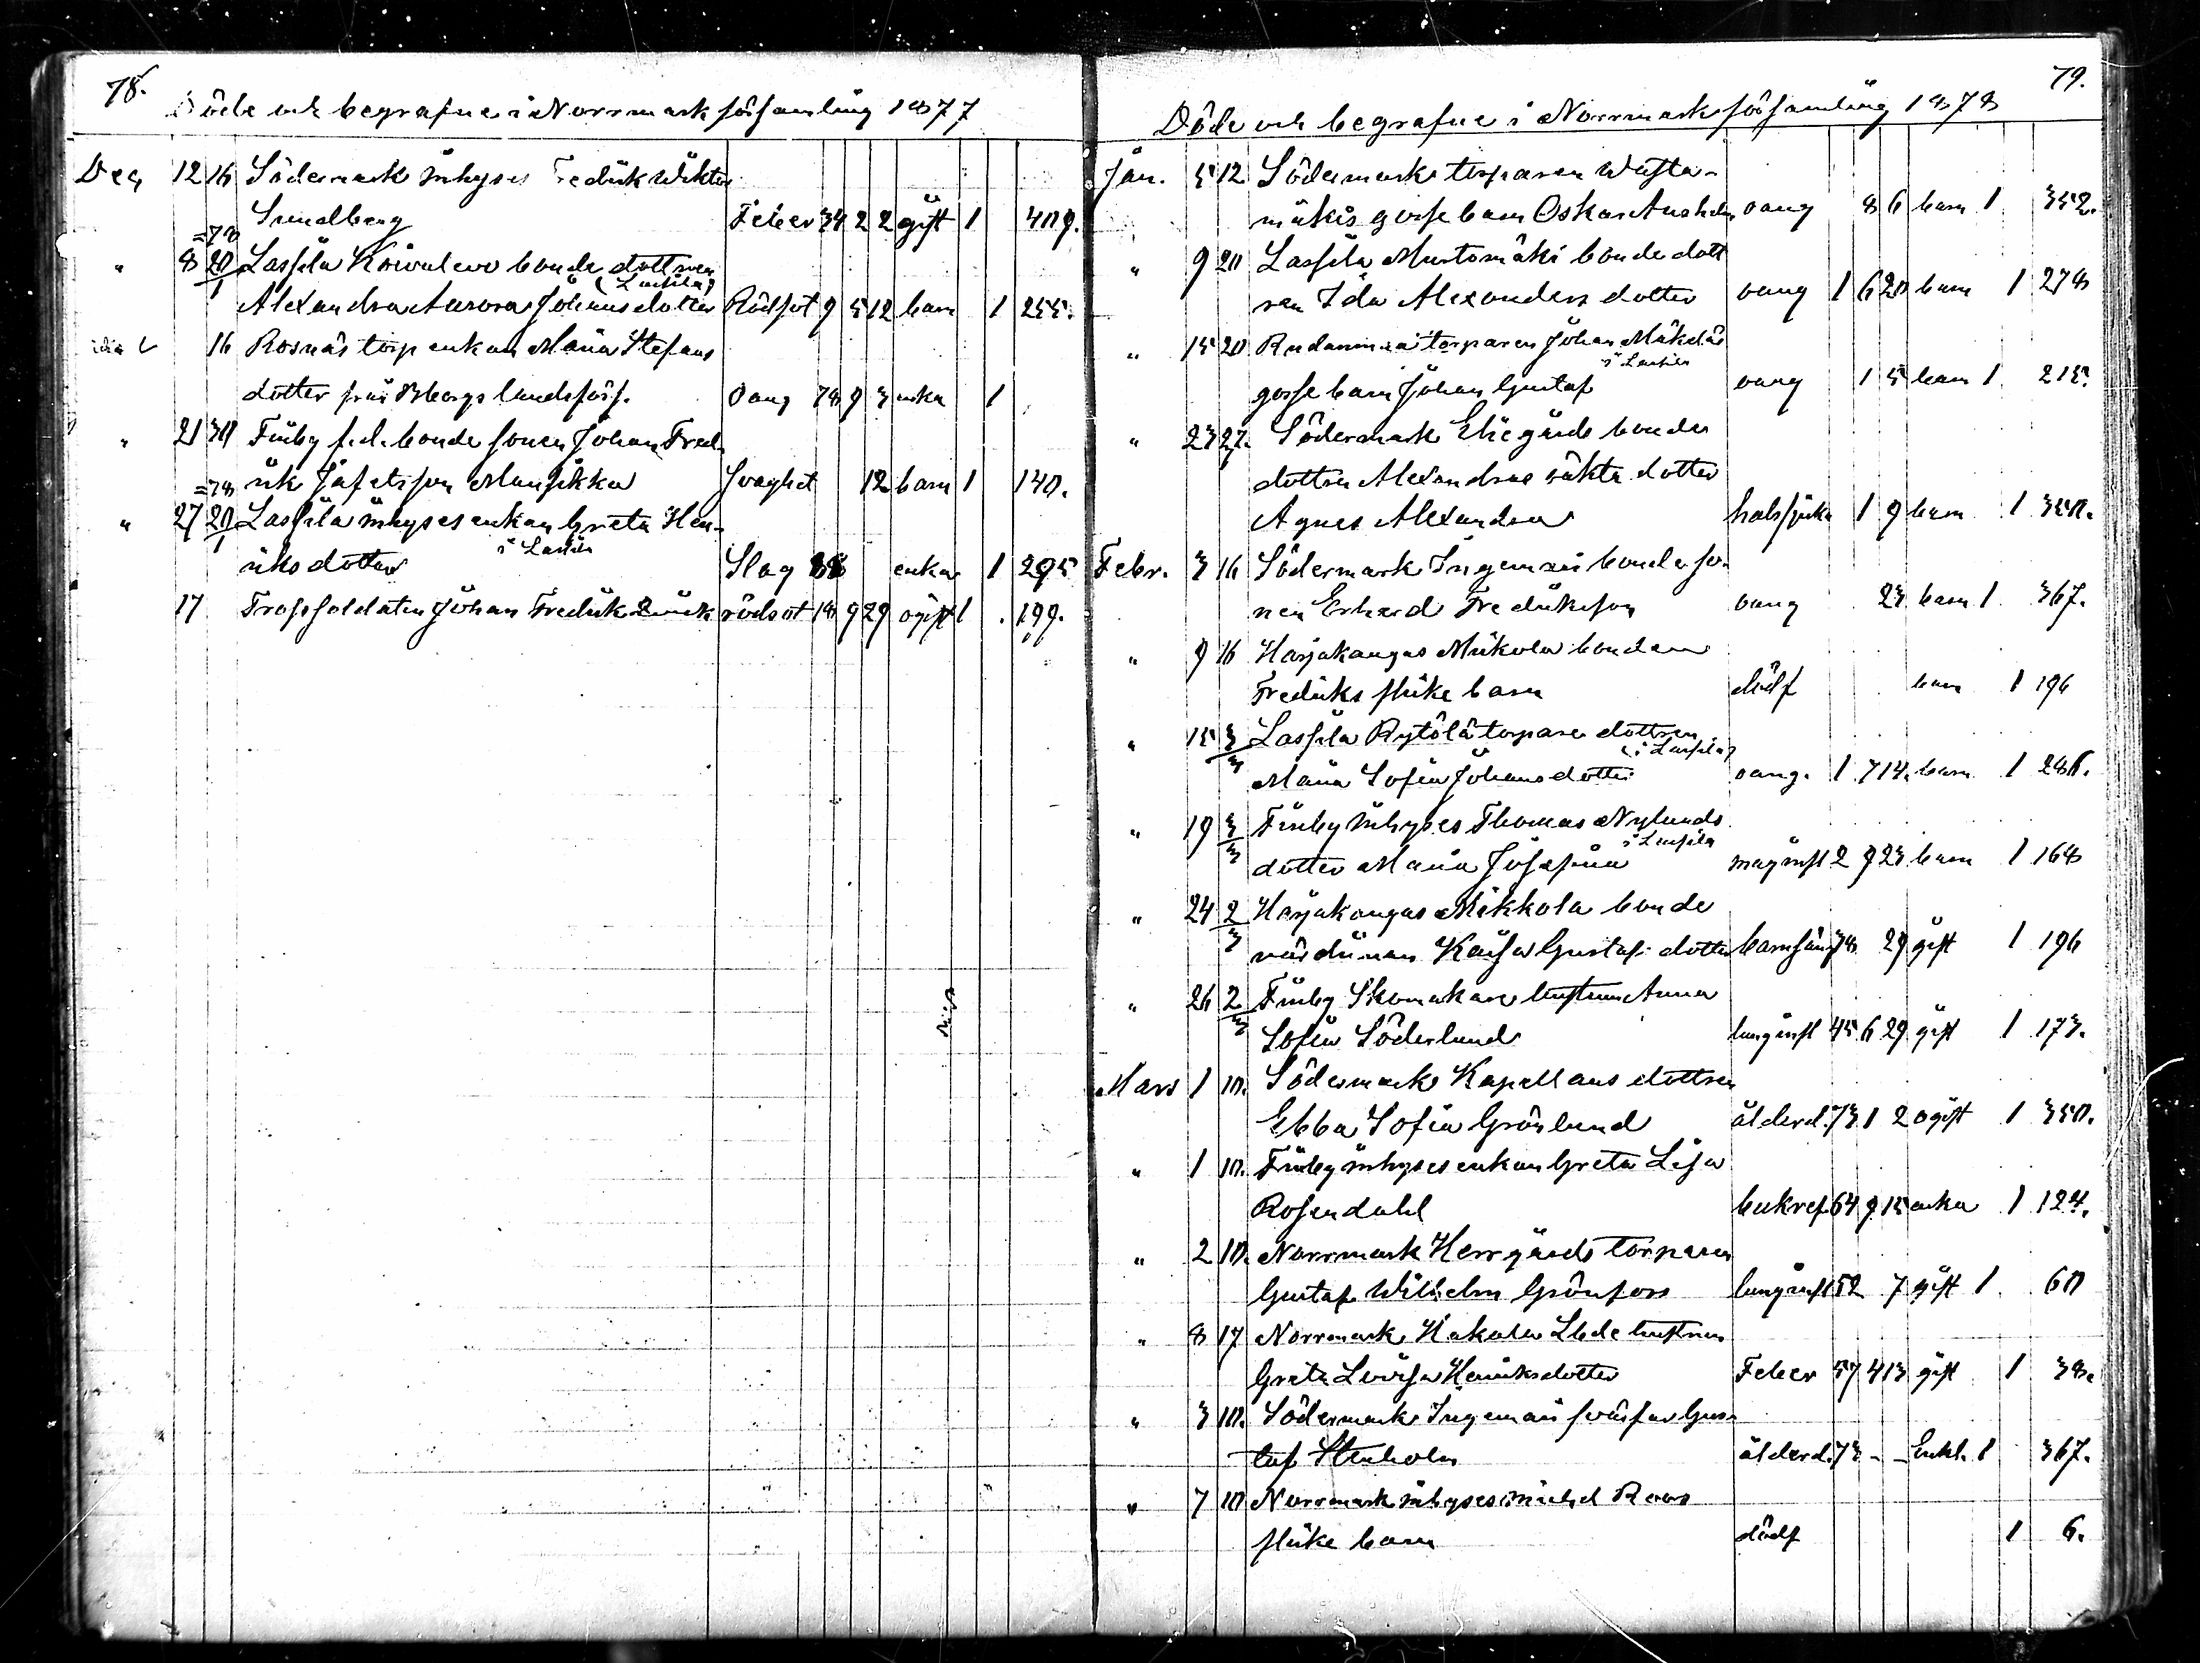 78.
Döde och begrafne i Norrmark församling 1877
Dec 12 16 Södermark inhyses Fredrik Wiktor
Sundberg Feber 34 2 2 gift 1 409.
=78
" 8 20/1 Lassila Koivulevo bonde dottren
(i Lassila)
Alexandra Aurora Johansdotter Rödsot 9 5 12 barn 1 255.
16 Rosnäs torp enkan Maria Stefans
dotter från Bbergs landsförs. oang 78 9 3 enka 1
" 21 30 Finby f.d. bonde sonen Johan Fred
rik Jafetsson Mansikka svaghet 12 barn 1 140.
=78
" 27 20/1 Lassila inhyses enkan Greta Hen-
riksdotter i Lassila Slag 88 enka 1 295
17 Trossoldaten Johan Fredrik rödsot 18 9 29 ogift 1 199.
79.
Döde och begrafne i Norrmarks församling 1878
Jan. 5 12 Södermarks torparen Westa-
mäkis gosse barn Oskar Anshelm oang 8 6 barn 1 352.
" 9 20 Lassila Mustomäki bonde dott
ren Ida Alexanders dotter oang 1 6 20 barn 1 278
" 15 20 torparen Johan
i Lassila
gosse barn Johan Gustaf oang 1 5 barn 1 215.
" 23 27. Södermark bonde
dottren Alexandras oäkta dotter
Agnes Alexandra halssjuka 1 9 barn 1 350.
Febr. 3 16 Södermark Ingemari bonde so-
nen Erhard Fredriksson oang 23 barn 1 367.
" 9 16 Harjakangas Mikola bonden
Fredriks flicke barn dödf barn 1 196
" 15 3/3 Lassila Rytölä torpare dottren
(i Lassila)
Maria Sofia Johansdotter oang. 1 7 14. barn 1 286.
" 19 3/3 Finby inhyses Thomas Nylunds
i Lassila
dotter Maria Josefina maginfl 2 9 23 barn 1 168
" 24 2/3 Harjakangas Mikkola bonde
värdinnan Kaisa Gustafsdotter barnsäng 38 29 gift 1 196
" 26 2/3 Finby Skomakare hustrun Anna
Sofia Söderlund lunginfl 45 6 29 gift 1 173.
Mars 1 10. Södermarks Kapellans dottren
Ebba Sofia Grönlund ålderd. 73 1 2 ogift 1 350.
" 1 10. Finby inhyses enkan Greta Lisa
Rosendahl bukref 64 9 15 enka 1 124.
" 2 10. Norrmark Herrgårds torparen
Gustaf Wilhelm Grönfors lunginfl 52 7 gift 1 60
" 8 17 Norrmark Hakola Lbde hustrun
Greta Lovisa Henriksdotter Feber 57 4 13 gift 1 38.
" 3 10. Södermarks Ingemari svärfar Gus-
taf Stenholm ålderd. 73 - - Enkl. 1 367.
" 7 10 Norrmark inhyses Michel Roos
flicke barn dödf 1 6.